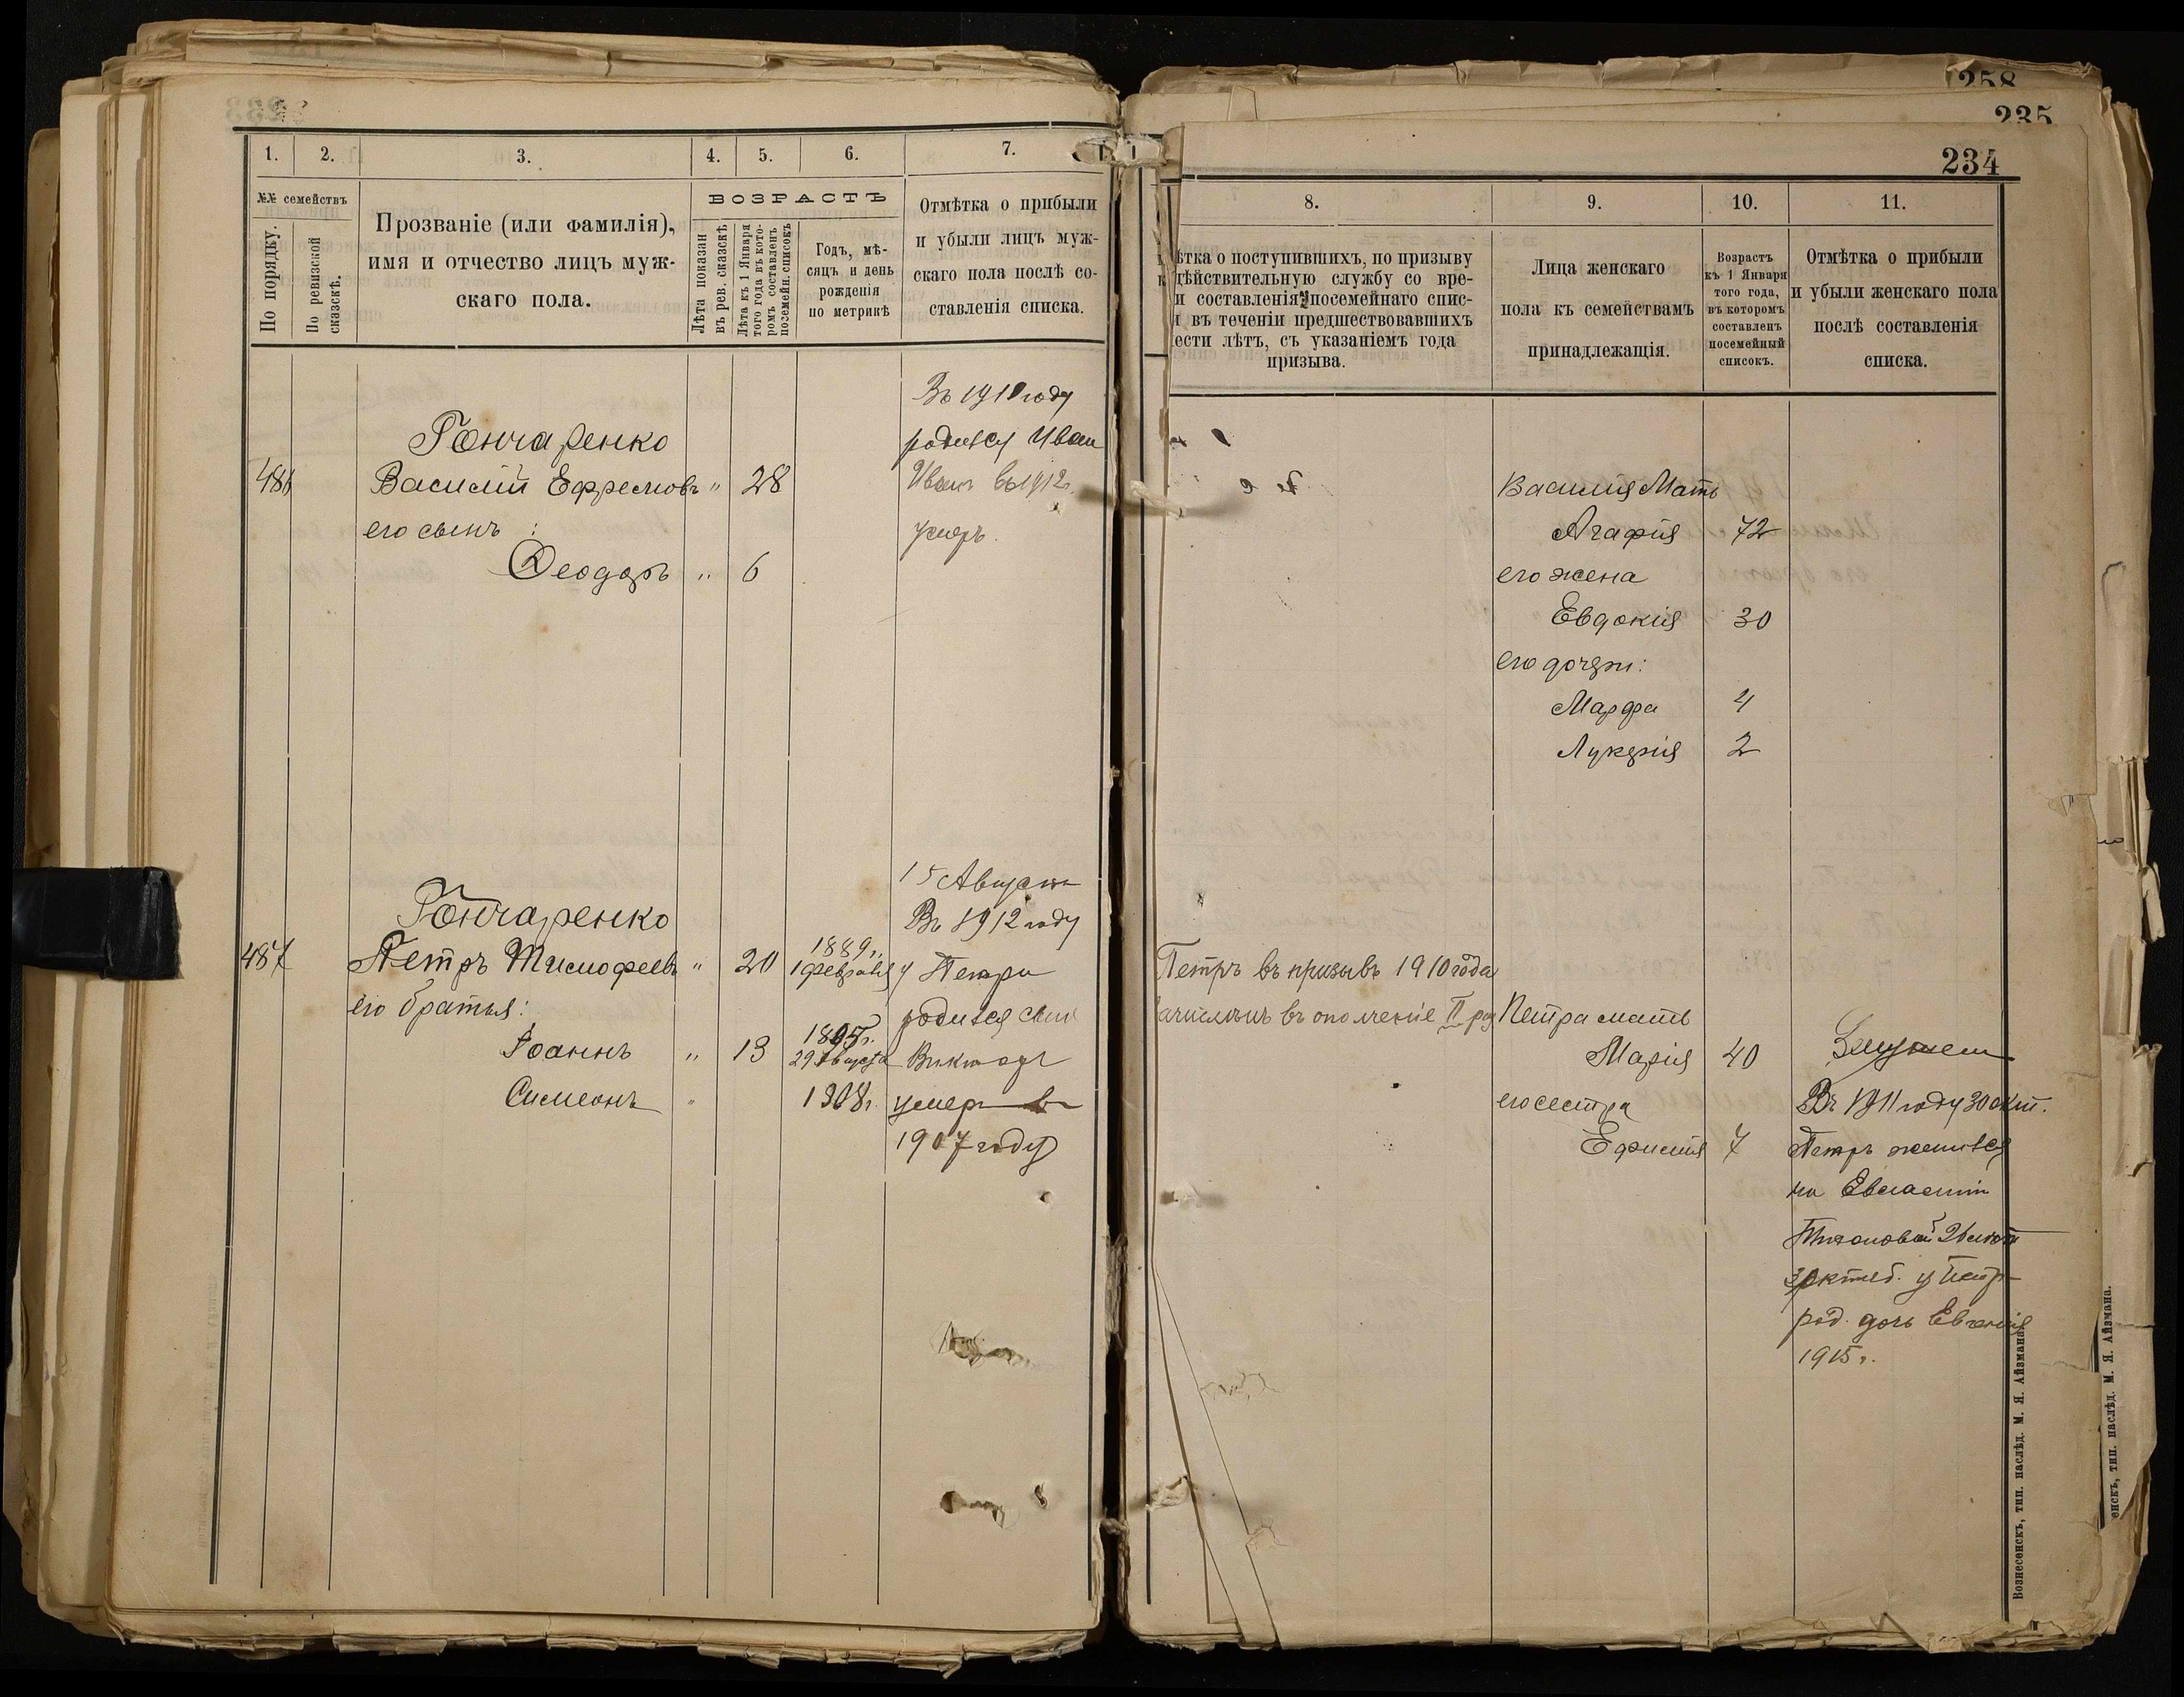 258
235
234
1. 2. 3. 4. 5. 6. 7.
№№ семействъ
По порядку.
По ревизской сказскѣ.
Прозваніе (или фамилія),
имя и отчество лицъ муж-
скаго пола.
ВОЗРАСТЪ
Лѣта показан
въ рев. сказскѣ
Лѣта къ 1 Января
того года въ кото-
ромъ составленъ
посемейн. списокъ
Годъ, мѣ-
сяцъ и день
рожденія
по метрикѣ
Отмѣтка о прибыли
и убыли лицъ муж-
скаго пола послѣ со-
ставленія списка.
Въ 1910 году
Гончаренко
родился Иванъ
486 Василій Ефремовъ " 28 Иванъ въ 1912г.
его сынъ : умеръ.
Ѳеодоръ " 6
15 Августа
Гончаренко
Въ 1912 году
487 Петръ Тимофеевъ " 20 1889г. 1 февраля у Петра
его братья: родился сынъ
Іоаннъ " 13 1895г. 29 Августа Викторъ
Симеонъ " 1908г. умеръ въ
1907 году
8. 9. 10. 11.
ѣтка о поступившихъ, по призыву
дѣйствительную службу со вре-
и составленія посемейнаго спис-
и въ теченіи предшествовавшихъ
ести лѣтъ, съ указаніемъ года
призыва.
Лица женскаго
пола къ семействамъ
принадлежащія.
Возрастъ
къ 1 Января
того года,
въ которомъ
составленъ
посемейный
списокъ.
Отмѣтка о прибыли
и убыли женскаго пола
послѣ составленія
списка.
Василія Мать
Агафія 72
его жена
Евдокія 30
его дочери:
Марфа 4
Лукерія 2
Петръ въ призывъ 1910 года
ачисленъ въ ополченіе II раз Петра мать
Марія 40
его сестра Въ 1911 году 30 окт.
Ефимія 7 Петръ женился
на
30 октяб. у Петр
род. дочь Евгенія
1915г.
Вознесенскъ, тип. наслѣд. М. Я. Айзмана.
енскъ, тип. наслѣд. М. Я. Айзмана.